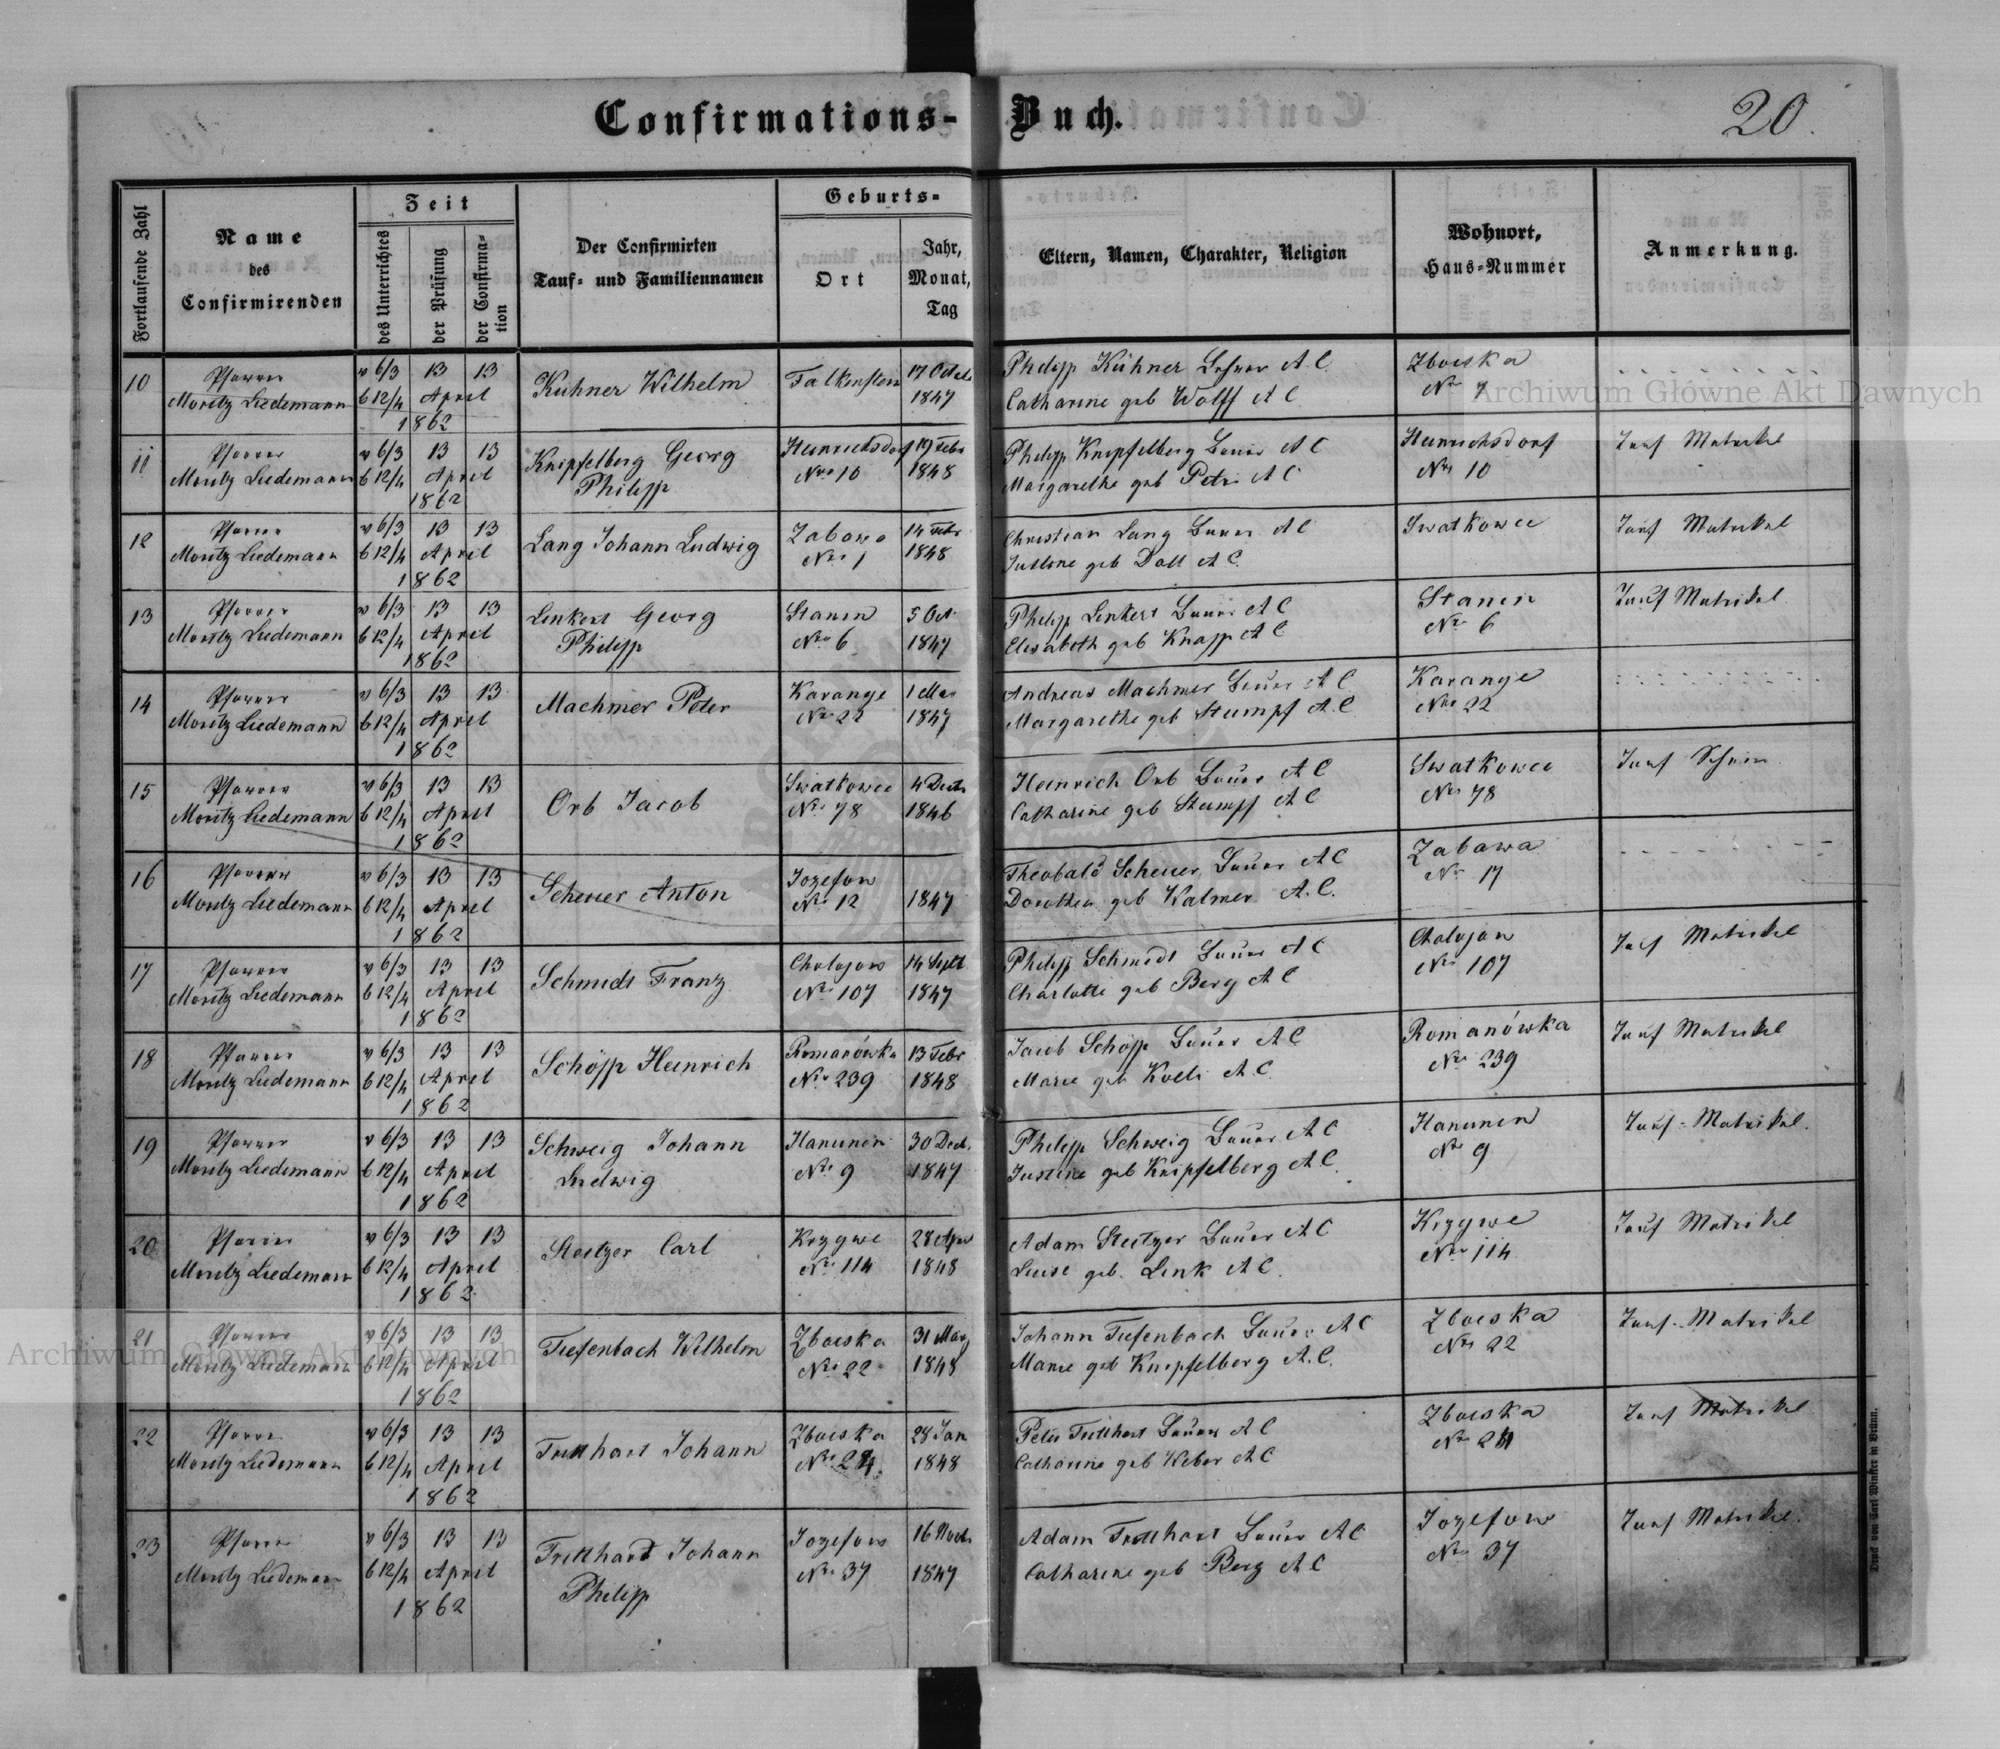 Confirmations-Buch.
20.
Fortlaufende Zahl
Name
des
Confirmirenden
Zeit
des Unterrichtes
der Prüfung
der Confirma-
tion
Der Confirmirten
Tauf- und Familiennamen
Geburts-
Ort
Jahr,
Monat,
Tag
Eltern, Namen, Charakter, Religion
Wohnort,
Haus-Nummer
Anmerkung.
10 Pfarrer v 6/3 13 13 Kühner Wilhelm Falkenstein 17 Philipp Kühner A C. Zboiska
Moritz Liedemann b 12/4 April 1847 Catharine geb Wolff A C Nro 7
1862
11 Pfarrer v 6/3 13 13 Knipfelberg Georg Heinrichsdorf 19 Febr Philipp Knipfelberg Bauer A C Heinrichsdorf Tauf Matrikel
Moritz Liedemann b 12/4 April Philipp Nro 10 1848 Margarethe geb Petri A C Nro 10
1862
12 Pfarrer v 6/3 13 13 Lang Johann Ludwig Zabawa 14 Febr Christian Lang Bauer A C Swatkowce Tauf Matrikel
Moritz Liedemann b 12/4 April Nro 1 1848 Justine geb A C.
1862
13 Pfarrer v 6/3 13 13 Linkert Georg Stanin 5 Oct Philipp Linkert Bauer A C Stanin Tauf Matrikel
Moritz Liedemann b 12/4 April Philipp Nro 6 1847 Elisabeth geb Knapp A C Nro 6
1862
14 Pfarrer v 6/3 13 13 Machmer Peter Karanye 1 Andreas Machmer Bauer A C Karanye
Moritz Liedemann b 12/4 April Nro 22 1847 Margarethe geb Stumpf A. C Nro 22
1862
15 Pfarrer v 6/3 13 13 Orb Jacob Swatkowce 4 Dec Heinrich Orb Bauer A C Swatkowce Tauf Schein
Moritz Liedemann b 12/4 April Nro 78 1846 Catharine geb Stumpf A C Nro 78
1862
16 Pfarrer v 6/3 13 13 Scheuer Anton Jozefow Theobald Scheuer, Bauer A C Zabawa
Moritz Liedemann b 12/4 April Nro 12 1847 Dorothea geb Kalmer A. C. Nro 17
1862
17 Pfarrer v 6/3 13 13 Schmidt Franz Cholojow 14 Sept Philipp Schmidt Bauer A C Cholojow Tauf Matrikel
Moritz Liedemann b 12/4 April Nro 107 1847 Charlotte geb Berg A C Nro 107
1862
18 Pfarrer v 6/3 13 13 Schöpp Heinrich Romanówka 13 Febr Jacob Schöpp Bauer A C Romanówka Tauf Matrikel
Moritz Liedemann b 12/4 April Nro 239 1848 Marie geb A. C. Nro 239
1862
19 Pfarrer v 6/3 13 13 Schweig Johann Hanunin 30 Dec. Philipp Schweig Bauer A C Hanunin Tauf-Matrikel.
Moritz Liedemann b 12/4 April Ludwig Nro 9 1847 Justine geb Knipfelberg A C. Nro 9
1862
20 Pfarrer v 6/3 13 13 Steitzer Carl Krzywe 28 Apr Adam Steitzer Bauer A C Krzywe Tauf Matrikel
Moritz Liedemann b 12/4 April Nro 114 1848 Luise geb. Link A C. Nro 114
1862
21 Pfarrer v 6/3 13 13 Tiefenbach Wilhelm Zboiska 31 März Johann Tiefenbach Bauer A C Zboiska Tauf-Matrikel
Moritz Liedemann b 12/4 April Nro 22 1848 Marie geb Knipfelberg A. C. Nro 22
1862
22 Pfarrer v 6/3 13 13 Tritthart Johann Zboiska 28 Jan Peter Tritthart Bauer A C Zboiska Tauf Matrikel
Moritz Liedemann b 12/4 April Nro 24. 1848 Catharine geb Weber A C Nro 24
1862
23 Pfarrer v 6/3 13 13 Tritthard Johann Jozefow 16 Adam Tritthart Bauer A C Jozefow Tauf Matrikel.
Moritz Liedemann b 12/4 April Philipp Nro 37 1847 Catharine geb Berg A C Nro 37
1862
Druck von Carl Winiker in Brünn.
Archiwum Główne Akt Dawnych
Archiwum Główne Akt Dawnych